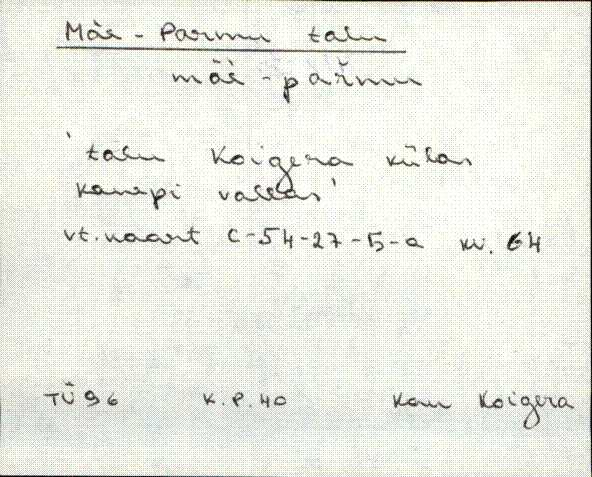 Mäe-Parmu talu
mäe-paŕmu
'talu Koigera külas
Kanepi vallas'
vt. kaart C-54-27-Б-a kv. 64
TÜ 96 K.P. 40 Kan Koigera